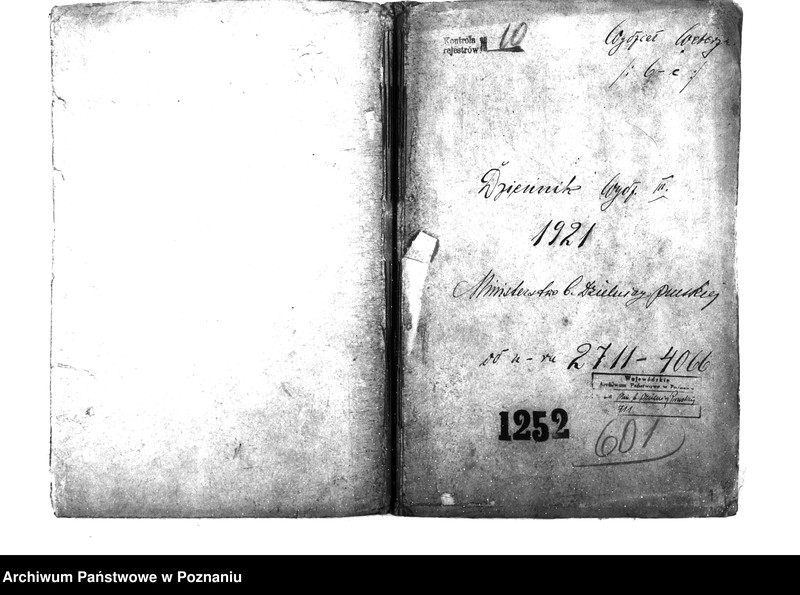 Kontrola
rejestrów 10
/: b-c :/
Dziennik Wydz. III.
1921
Ministerstwo b. Dzielnicy pruskiej
od n-ru 2711-4066
Wojewódzkie
Archiwum Państwowe w Poznaniu
1252
601
Archiwum Państwowe w Poznaniu